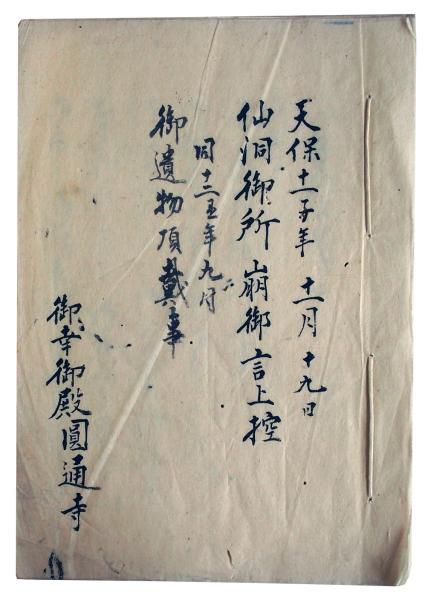 天保十一子年 十一月十九日
仙洞御所 崩御言上控
同十二丑年九月
御遺物頂戴事
御幸御殿圓通寺